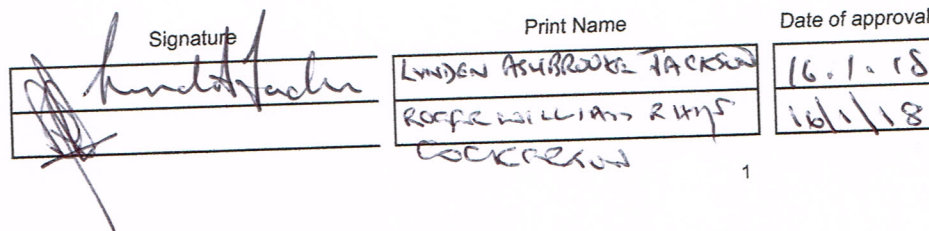 Signature Print Name Date of approval
LYNDEN ASHBROOKE JACKSON 16.1.18
ROGER WILLIAM RHYS 16/1/18
COCKERSON
1